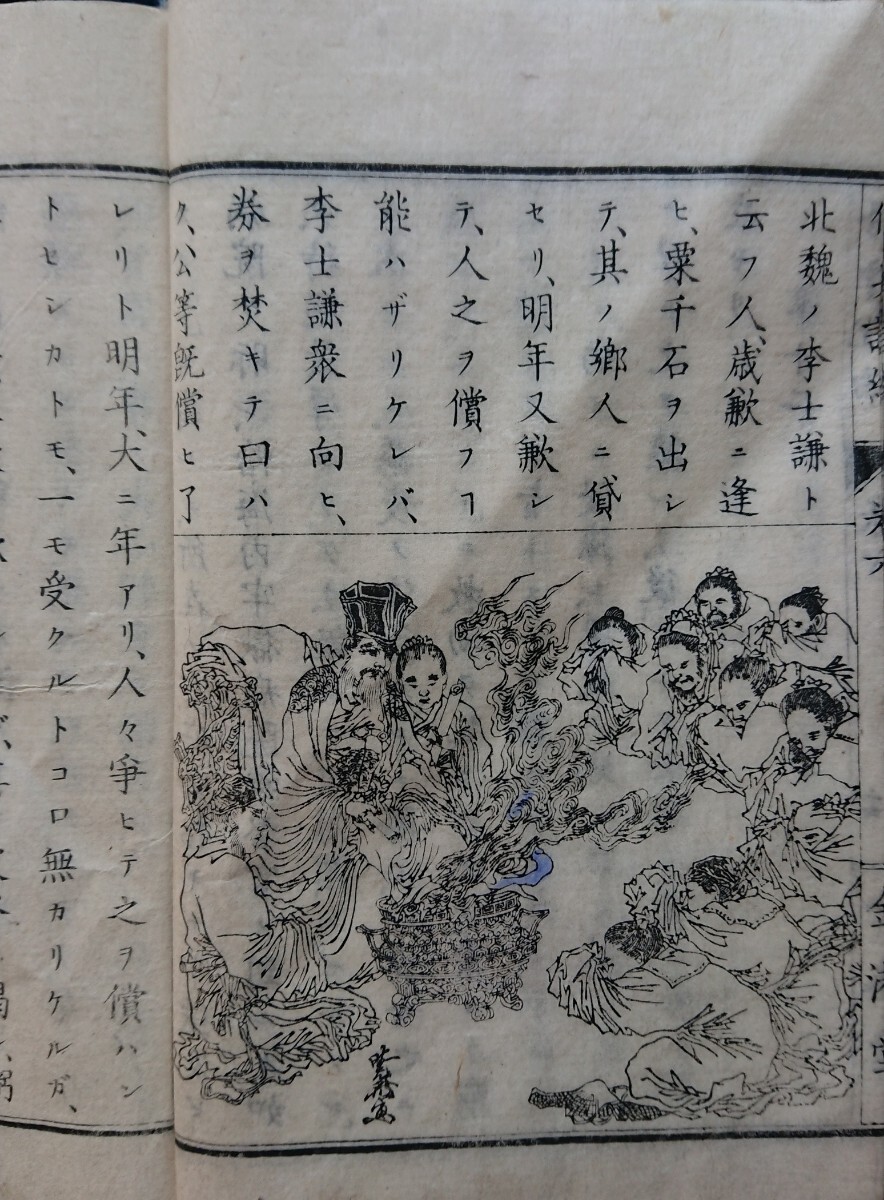 北魏ノ李士謙ト
云フ人、歳歉ニ逢
ヒ、粟千石ヲ出シ
テ、其ノ郷人ニ貸
セリ、明年又歉シ
テ、人之ヲ償フヿ
能ハザリケレバ、
李士謙衆ニ向ヒ、
券ヲ焚キテ曰ハ
ク、公等既償ヒ了
レリト明年、大ニ年アリ、人々爭ヒテ之ヲ償ハン
トヒシカトモ、一モ受クルトコロ無カリケルガ、